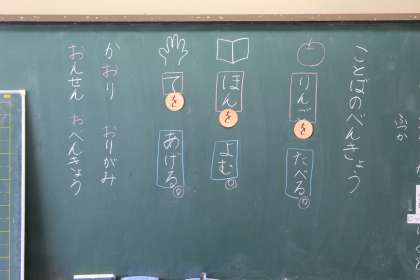 ことばのべんきょう
りんご を たべる
ほん を よむ
て を あげる
かおり おりがみ
おんせん おべんきょう